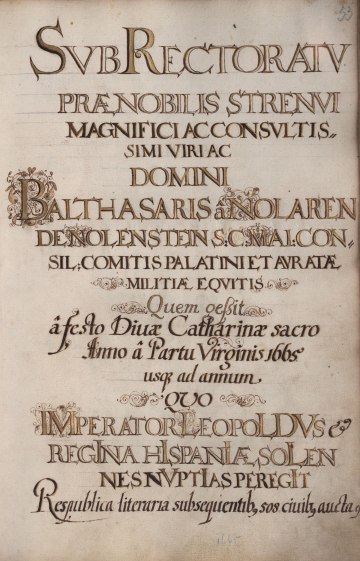 53
SVB RECTORATV
PRÆNOBILIS STRENVI
MAGNIFICI AC CONSVLTIS-
SIMI VIRI AC
DOMINI
BALTHASARIS à NOLAREN
DE NOLENSTEIN S.C. MAI. CON-
SIL: COMITIS PALATINI ET AVRATÆ
MILITIÆ EQVITIS
Quem gessit
â festo Divæ Catharinæ sacro
Anno â Partu Virginis 1665
usq; ad annum
QVO
IMPERATOR LEOPOLDVS &
REGINA HISPANIÆ, SOLEN
NES NVPTIAS PEREGIT
Respublica literaria subsequentib, sos civib, aucta
1665